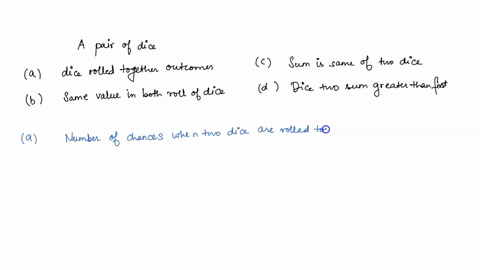 A pair of dice
(a) dice rolled together outcomes
(b) Same value in both roll of dice
(c) Sum is same of two dice
(d) Dice two sum greater than first
(a) Number of chances when two dice are rolled to